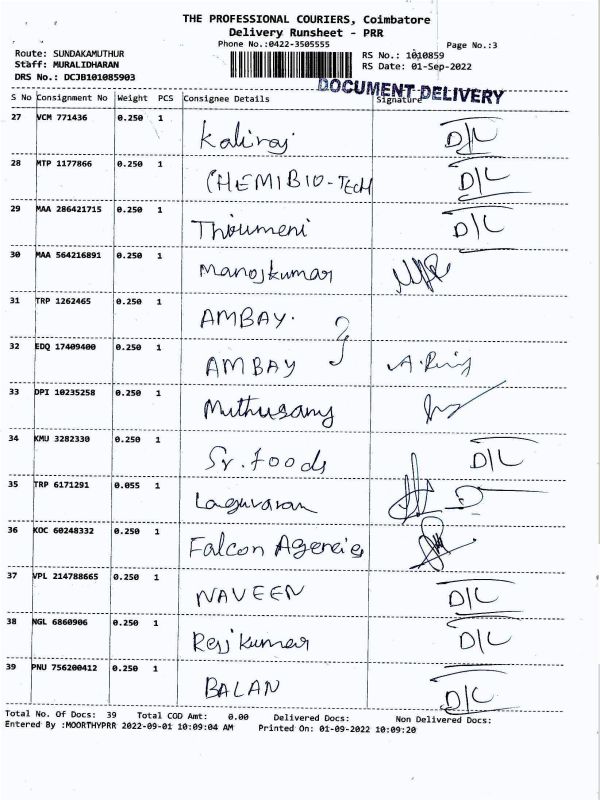 THE PROFESSIONAL COURIERS, Coimbatore
Delivery Runsheet - PRR
Phone No.:0422-3505555
Page No.:3
Route: SUNDAKAMUTHUR
RS No.: 1010859
Staff: MURALIDHARAN
RS Date: 01-Sep-2022
DRS No.: DCJB101085903
DOCUMENT DELIVERY
S No Consignment No Weight PCS Consignee Details Signature
27 VCM 771436 0.250 1 Kaliraj D/L
28 MTP 1177866 0.250 1 CHEMIBIO-TECH D/L
29 MAA 286421715 0.250 1 Thirumeni D/L
30 MAA 564216891 0.250 1 Manojkumar
31 TRP 1262465 0.250 1 AMBAY.
32 EDQ 17409400 0.250 1 AMBAY
33 DPI 10235258 0.250 1 Muthusamy
34 KMU 3282330 0.250 1 Sr. foods D/L
35 TRP 6171291 0.055 1 Laguvaran
36 KOC 60248332 0.250 1 Falcon Agencies
37 VPL 214788665 0.250 1 NAVEEN D/L
38 NGL 6860906 0.250 1 Rajkumar D/L
39 PNU 756200412 0.250 1 BALAN D/L
Total No. Of Docs: 39 Total COD Amt: 0.00 Delivered Docs: Non Delivered Docs:
Entered By :MOORTHYPRR 2022-09-01 10:09:04 AM Printed On: 01-09-2022 10:09:20